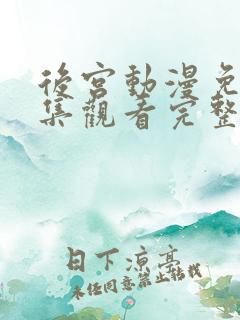 後宮動漫免
集觀看完整
日下涼亭
未任同意禁止轉載